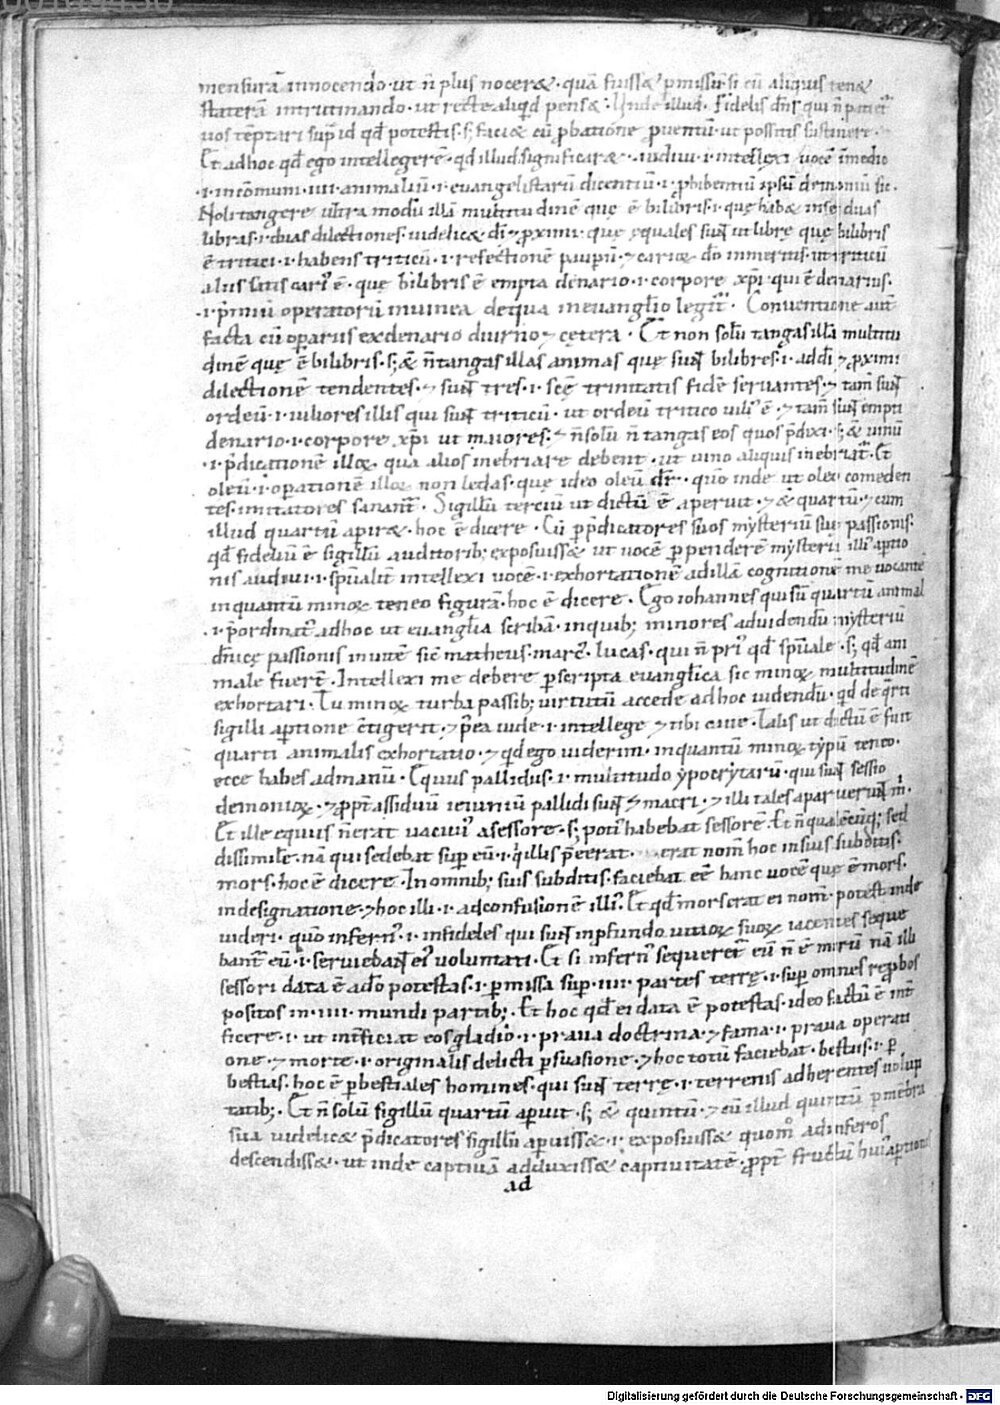 mensurā innocendo · ut n̄ plus nocer& · quā fuiss& pmissū · si cū aliquis ten&
staterā intrutinando · ut recte aliqd pens& · Unde illud · Fidelis dn̄s qui n̄ patiet᷑
uos tēptari sup id qd potestis · s; faci& cū p̄batione puentū · ut possitis sustinere ·
Et ad hoc qd ego intellegerē · qd illud significar& · audiui · i · intellexi uocē in medio
· i · in cōmuni · iiii · animaliū · i · euangelistarū dicentiū · i · phibentiū ipsū demoniū sic ·
Noli tangere ultra modū illā multitudinē quę ē bilibris · i · quę hab& in se duas
libras · i · duas dilectiones · uidelic& · dī ⁊ pximi · quę equales sun͛t ut librę quę bilibris
ē tritici · i · habens triticū · i · refectionē paupū · ⁊ cari& · dō inmeritis · ut triticū
aliis satis carī ē · quę bilibris ē empta denario · i · corpore xp̄i qui ē denarius ·
· i · p̄miū operatorū in uinea de qua in euanglio legit᷑ · Conuentione aut̄
facta cū opariis ex denario diurno ⁊ cętera · Et non solū tangas illā multitu
dinē quę ē bilibris · s; & n̄ tangas illas animas quę sunt bilibres · i · ad dī ⁊ pximi
dilectionē tendentes · ⁊ sunt tres · i · scę trinitatis fidē seruantes · ⁊ tam̄ sunt
ordeū · i · uiliores illis qui sunt triticū · ut ordeū tritico uili᷑ ē · ⁊ tam̄ sunt empti
denario · i · corpore xp̄i ut maiores · ⁊ n̄ solū n̄ tangas eos quos p̄dixi · s; & uinū
· i · p̄dicationē illoꝝ · qua alios inebriare debent · ut uino aliquis inebriat᷑ · Et
oleū · i · opationē illoꝝ non ledas · quę ideo oleū dr̄ · quō inde ut oleū comeden
tes · imitatores sanant᷑ · Sigillū terciū ut dictū ē aperuit · ⁊ & quartū · ⁊ cum
illud quartū apir& · hoc ē dicere · Cū p p̄dicatores suos mysteriū sue passionis ·
qd fideliū ē sigillū auditorib; exposuiss& ut uocē ppenderē mysterii illi᷑ aptio
nis audiui · i · spūalit᷑ intellexi uocē · i · exhortationē ad illā cognitionē me uocante
in quantū minoꝝ teneo figurā · hoc ē dicere · Ego iohannes qui sū quartū animal
· i · p̄ordinat᷑ ad hoc ut euanglia scribā · in quib; minores ad uidendū mysteriū
dn̄icę passionis inuitē sic matheus · marc᷑ · lucas · qui n̄ pri᷑ qd spūale · s; qd ani
male fuerē · Intellexi me debere p scripta euanglica sic minoꝝ multitudinē
exhortari · Tu minoꝝ turba passib; uirtutū accede ad hoc uidendū · qd de qrti
sigilli aptione ctigerit · ⁊ p̄ea uide · i · intellege ⁊ tibi caue · Talis ut dictū ē fuit
quarti animalis exhortatio · ⁊ qd ego uiderim · in quantū minoꝝ typū teneo ·
ecce habes ad manū · Equus pallidus · i · multitudo ypocritarū · qui sunt sessio
demonioꝝ · ⁊ ppt᷑ assiduū ieiuniū pallidi sunt ⁊ macri · ⁊ illi tales aparuerunt m̄ ·
Et ille equus n̄ erat uacuu᷑ a sessore · s; poti᷑ habebat sessorē · Et n̄ qualēcūq; sed
dissimilē · nā qui sedebat sup eū · i · q illis p̄erat · erat nom̄ hoc in suis subditis ·
mors · hoc ē dicere · In omnib; suis subditis faciebat eē hanc uocē quę ē mors ·
in designatione · ⁊ hoc illi · i · ad confusionē illi᷑ · Et qd mors erat ei nom̄ · potest inde
uideri · quō infern᷑ · i · infideles qui sunt in pfundo uitioꝝ suoꝝ iacentes seque
bant᷑ eū · i · seruiebant ei᷑ uoluntati · Et si infern᷑ sequeret᷑ eū n̄ ē mirū nā illi
sessori data ē a dō potestas · i · pmissa sup · iiii · partes terrę · i · sup omnes reprobos
positos in · iiii · mundi partib; · Et hoc qd ei data ē potestas · ideo factū ē int᷑
ficere · i · ut int᷑ficiat eos gladio · i · praua doctrina · ⁊ fama · i · praua operati
one · ⁊ morte · i · originalis delicti psuasione · ⁊ hoc totū faciebat · bestiis · i · p
bestias · hoc ē p bestiales homines · qui sunt terrę · i · terrenis adherentes uolup
tatib; · Et n̄ solū sigillū quartū apuit · s; & quintū · ⁊ cū illud quintū p mēbra
sua uidelic& p̄dicatores sigillū apuiss& · i · exposuiss& quom̄ ad inferos
descendiss& · ut inde captiuā adduxiss& captiuitatē · ppt᷑ fructū hui᷑ aptionis
ad
Digitalisierung gefördert durch die Deutsche Forschungsgemeinschaft - DFG